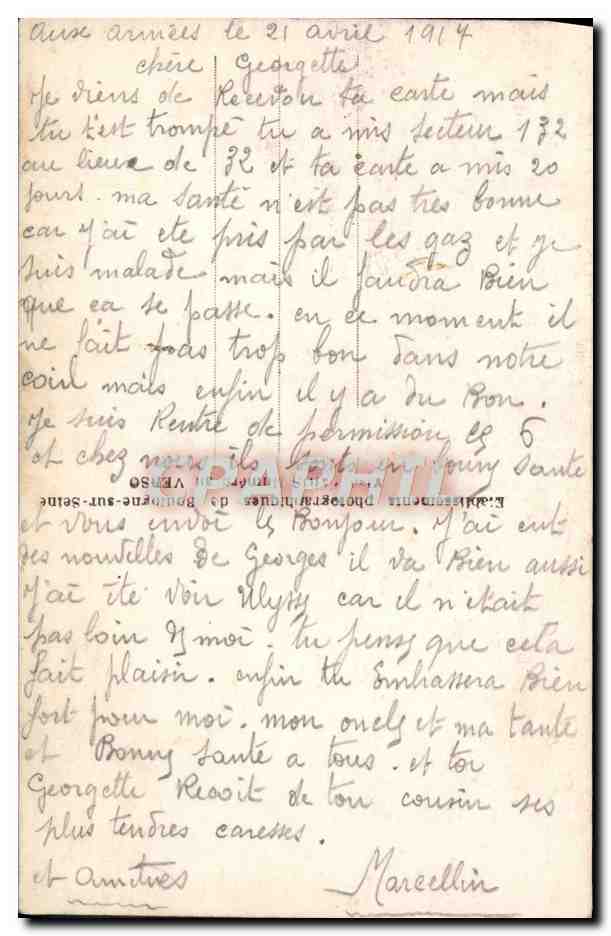 Aux armées le 21 avril 1917
chère Georgette
Je viens de Recevoir ta carte mais
tu t'est trompé tu a mis secteur 132
au lieux de 32 et ta carte a mis 20
jours. ma santé n'est pas tres bonne
car j'ai ete pris par les gaz et je
suis malade mais il faudra Bien
que ca se passe. en ce moment il
ne fait pas trop bon dans notre
coin mais enfin il y a du Bon.
Je suis Rentré de permission le 6
et chez nous ils sont en bonne santé
CPARHIL
Visé PARIS numéro au VERSO
Etablissements photographiques de Boulogne-sur-Seine
et vous envoi le Bonjour. J'ai eut
des nouvelles de Georges il va Bien aussi
J'ai ité voir Ulysse car il n'etait
pas loin de moi. tu pense que cela
fait plaisir. enfin tu Embrassera Bien
fort pour moi. mon oncle et ma tante
et Bonne santé a tous. et toi
Georgette Recoit de ton cousin ses
plus tendres caresses.
et Amitiés Marcellin